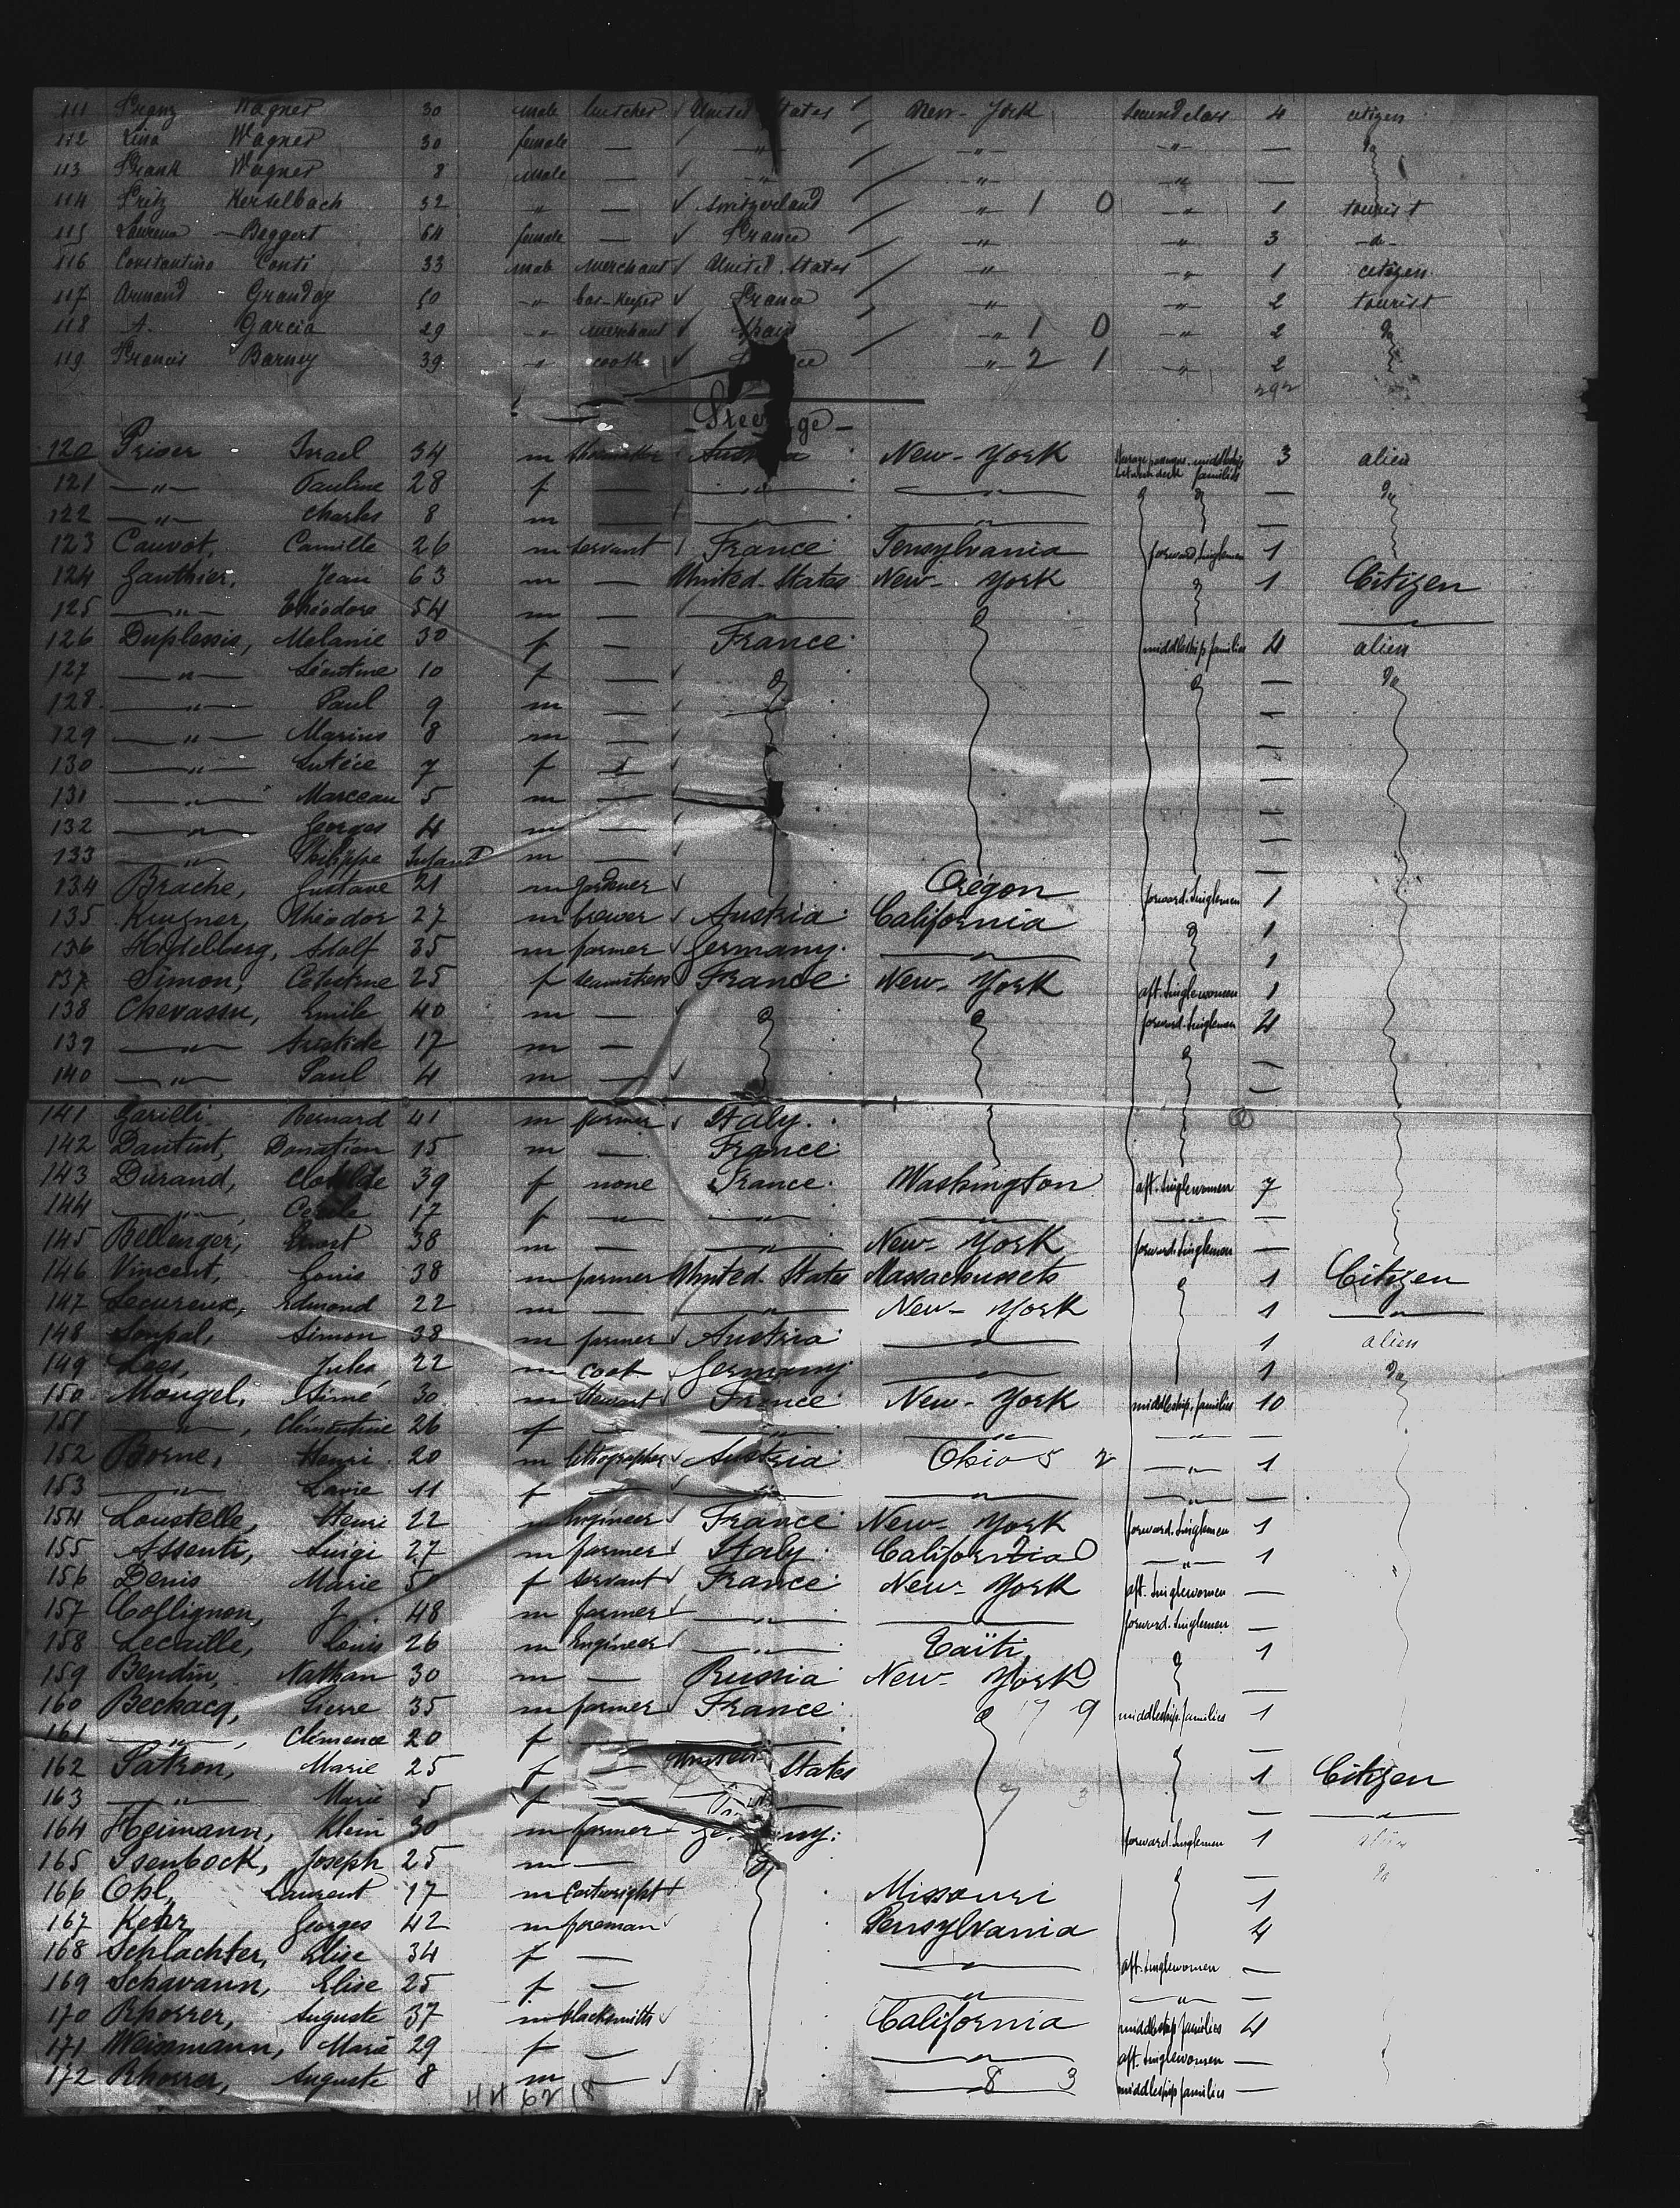 111 Franz Wagner 30 male butcher United States New-York second class 4 citizen
112 Lina Wagner 30 female — " " " — do
113 Frank Wagner 8 male — " " " —
114 Fritz Kerselbach 32 " — Switzerland " 1 0 " 1 tourist
115 Baggert 64 female — France " " 3 -d-
116 Constantino Conti 33 male merchant United States " " 1 citizen
117 Armand Granday 50 " bar-keeper France " " 2 tourist
118 A. Garcia 29 " merchant Spain " 1 0 " 2 do
119 Francis Barney 39 " cook " 2 1 " 2
292
Steerage
120 Priser Israel 34 m shoemaker Austria New-York 3 alien
121 " Pauline 28 f — " " — do
122 " Charles 8 m — " " —
123 Cauvot, Camille 26 m servant France Pensylvania forward. singlemen 1
124 Gauthier, Jean 63 m — United-States New-York 1 Citizen
125 " Théodore 54 m — " "
126 Duplessis, Melanie 30 f — France middleship families 4 alien
127 " Léontine 10 f — do — do
128 " Paul 9 m — —
129 " Marius 8 m — —
130 " Lutéce 7 f — —
131 " Marceau 5 m — —
132 " Georges 4 m — —
133 " Philippe Infant m — —
134 Brache, Gustave 21 m gardener Orégon forward. singlemen 1
135 Krugner, Théodor 27 m brewer Austria California 1
136 Adolf 35 m farmer Germany " 1
137 Simon, 25 f France New-York aft. singlewomen 1
138 Chevassu, Emile 40 m — forward. singlemen 4
139 " Aristide 17 m — —
140 " Paul 4 m — —
141 Garilli Bernard 41 m farmer Italy
142 Dautut, Donatien 15 m — France
143 Durand, Clotilde 39 f none France Washington aft. singlewomen 7
144 " Cecile 17 f " " " " —
145 Bellenger, Ernest 38 m — " New-York forward. singlemen —
146 Vincent, Louis 38 m farmer United-States Massachussets 1 Citizen
147 Lecureux, Edmond 22 m — " New-York 1 "
148 Simon 38 m farmer Austria " 1 alien
149 Jules 22 m cook Germany " 1 do
150 Mougel, Aimé 30 m Stewart France New-York middleship. families 10
151 ", Clémentine 26 f — " " " —
152 Borne, Henri 20 m lithographer Austria Ohio 5 2 " 1
153 " 11 f — " " " —
154 Loustelle, Henri 22 m Engineer France New-York forward. singlemen 1
155 Assenti, Luigi 27 m farmer Italy California " 1
156 Denis Marie f servant France New-York aft. singlewomen —
157 Collignon, J. 48 m farmer " " forward. singlemen —
158 Lecaille, Louis 26 m Engineer " Taïti 1
159 Bendin, Nathan 30 m — Russia New-York —
160 Beckacq, Pierre 35 m farmer France 17 9 middleship. families 1
161 ", Clémence 20 f — " —
162 Patron, Marie 25 f — United States 1 Citizen
163 " Marie 5 f — " 7 3 — "
164 Heimann, Klein 30 m farmer Germany: forward. singlemen 1 alien
165 Isenbock, Joseph 25 m — — do
166 Opl, Laurent 17 m Cartwright Missouri 1
167 Kehr Georges 42 m foreman Pensylvania 4
168 Schlachter, Elise 34 f — " aft. singlewomen —
169 Schavann, Elise 25 f — " " —
170 Rhorrer, Auguste 37 m blacksmith California middleship families 4
171 Weissmann, Marie 29 f — " aft. singlewomen —
172 Rhorrer, Auguste 8 m — " 8 3 middleship families —
44 62 18